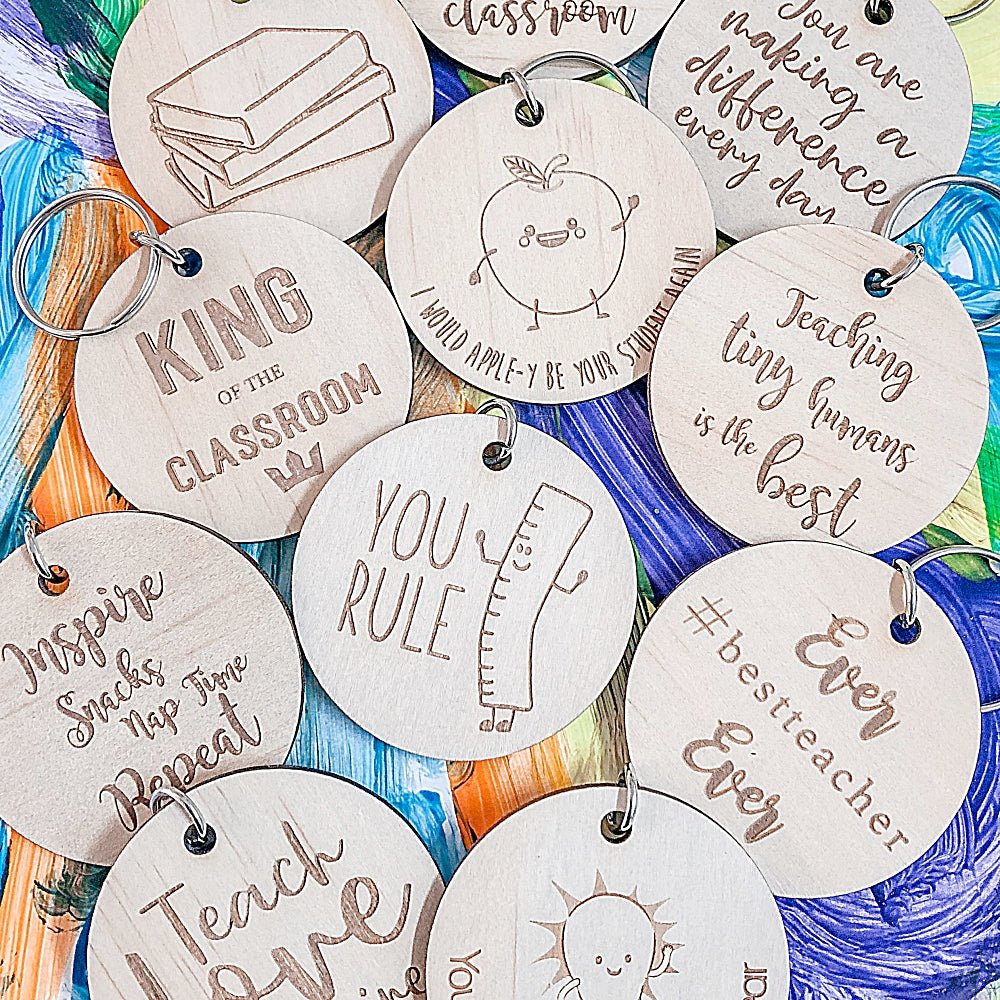 classroom
You are
making a
difference
every day
I WOULD APPLE-Y BE YOUR STUDENT AGAIN
KING
OF THE
CLASSROOM
Teaching
tiny humans
is the best
YOU
RULE
Inspire
Snacks
Nap Time
Repeat
Ever
#bestteacher
Ever
Teach
Love